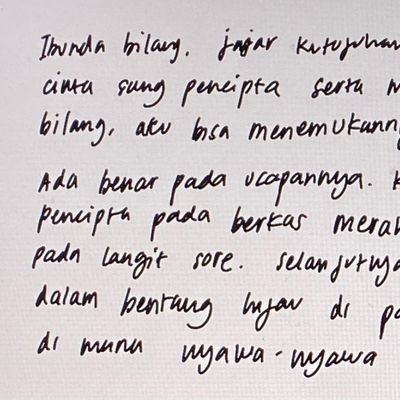 Ibunda bilang, jajar ketujuhan
cinta sang pencipta serta
bilang, aku bisa menemukann
Ada benar pada ucapannya.
pencipta pada berkas merah
pada langit sore. Selanjutnya
dalam bentang hijau di
di mana nyawa-nyawa